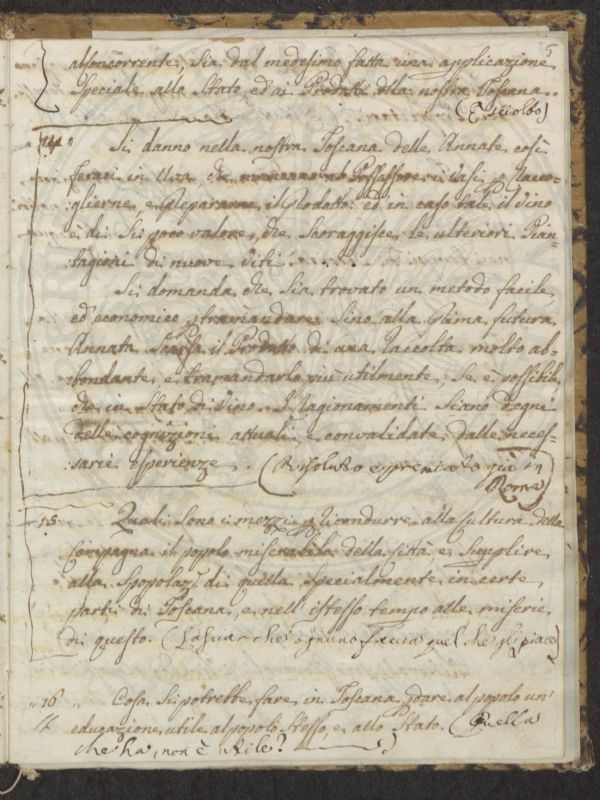 5
al Concorrente, sia dal medesimo fatta una applicazione
Speciale allo Stato, ed ai Prodotti della nostra Toscana.
14
Si danno nella nostra Toscana delle Annate così
feraci in Uva, che mancano al Possessore i Vasi p racco-
glierne, e preparare il Prodotto: ed in caso tale il vino
è di sì poco valore, che scoraggisce le ulteriori Pian-
tagioni di nuove viti.
Si domanda che sia trovato un metodo facile,
ed economico p tramandare sino alla prima futura
Annata scarsa il Prodotto di una raccolta molto ab-
bondante, e tramandarlo più utilmente, se è possibile,
che in stato di vino. I ragionamenti siano degni
delle cognizioni attuali, e convalidate dalle neces-
sarie esperienze. (Risoluto e premiato già in
Roma)
15 Quali sono i mezzi p ricondurre alla cultura della
Campagna il popolo miserabile delle Città, e supplire
alla spopolaz. di quella specialmente in certe
parti di Toscana, e nell' istesso tempo alle miserie
di questo. (Lasciar che ognuno faccia quel che gli piace)
16 Cosa si potrebbe fare in Toscana p dare al popolo un'
educazione utile al popolo stesso, e allo Stato. (Quella
che ha, non è utile?)